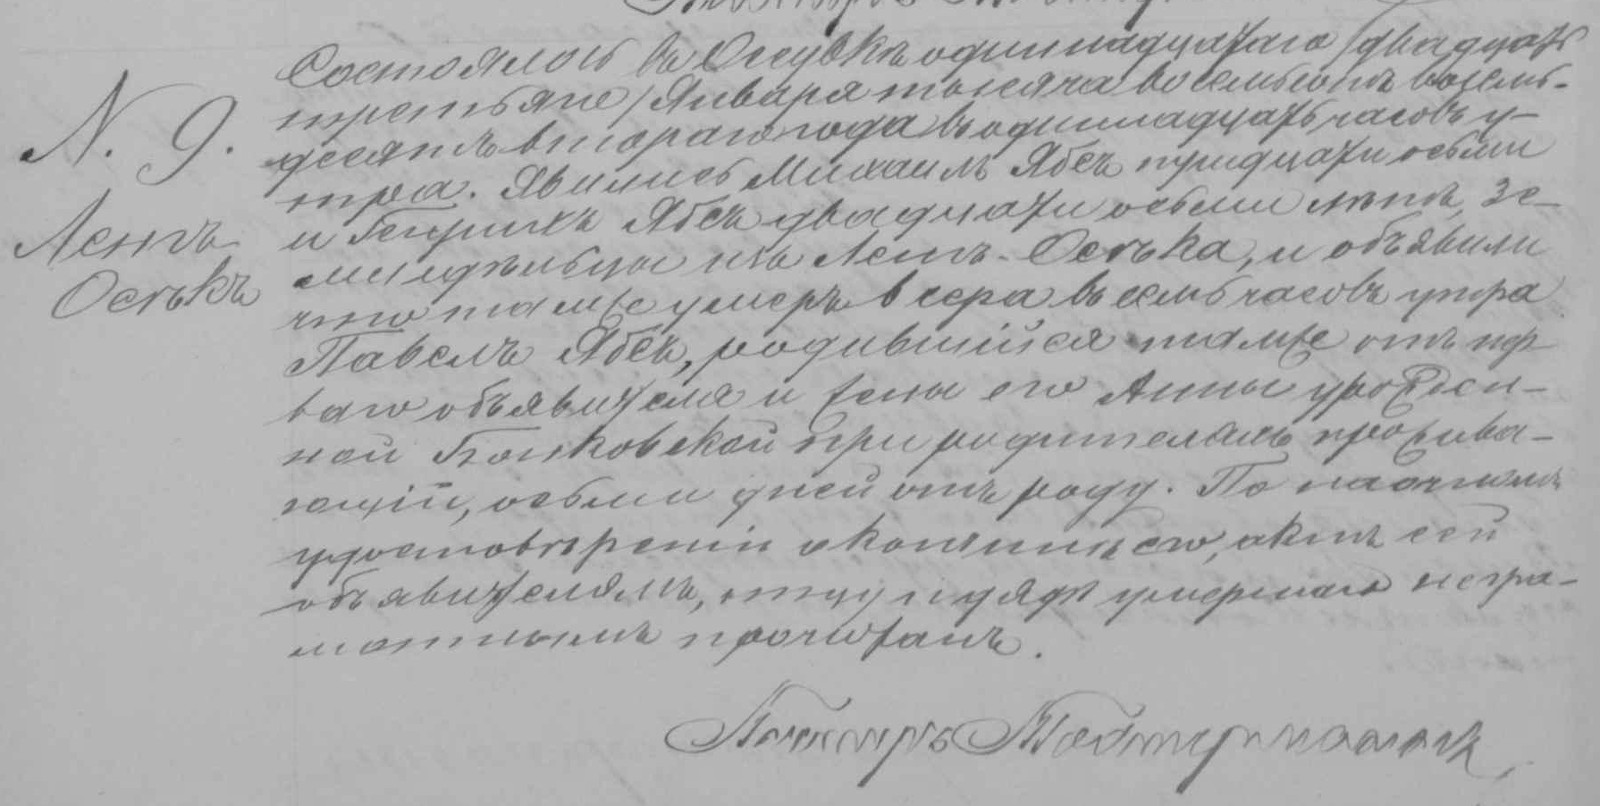 N. 9.
Лентъ
Остькъ
Состоялось въ одиннадцатаго /двадцать
третьяго/ Января тысяча восемьсотъ восемь-
десятъ втораго года въ одиннадцать часовъ у-
тра. Явились Михаилъ Ябсъ тридцати осьми
и Генрихъ Ябсъ двадцати осьми лѣтъ, зе-
мледѣльцы изъ Лентъ-Остька, и объявили
что тамже умеръ вчера въ семь часовъ утра
Павелъ Ябсъ, родившійся тамже отъ пер-
ваго объявителя и жены его Анны урожден-
ной при родителяхъ прожива-
ющій, осьми дней отъ роду. По наочномъ
удостовѣреніи о кончинѣ его, актъ сей
объявителямъ, отцу и дядѣ умершаго негра-
мотнымъ прочитанъ.
Пасторъ